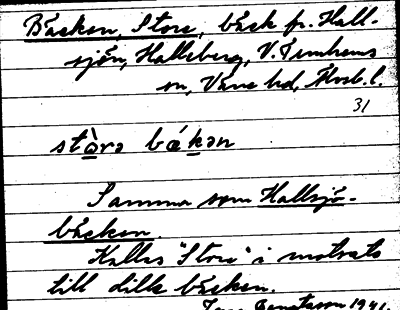 Bäcken, Store, bäck fr. Hall-
sjön, Halleberg, V. Tunhems
sn, Väne hd, Älvsb. l.
31
stòrə bákən
Samma som Hallsjö-
bäcken.
Kallas "Store" i motsats
till lille bäcken.
Gustafsson 1941.